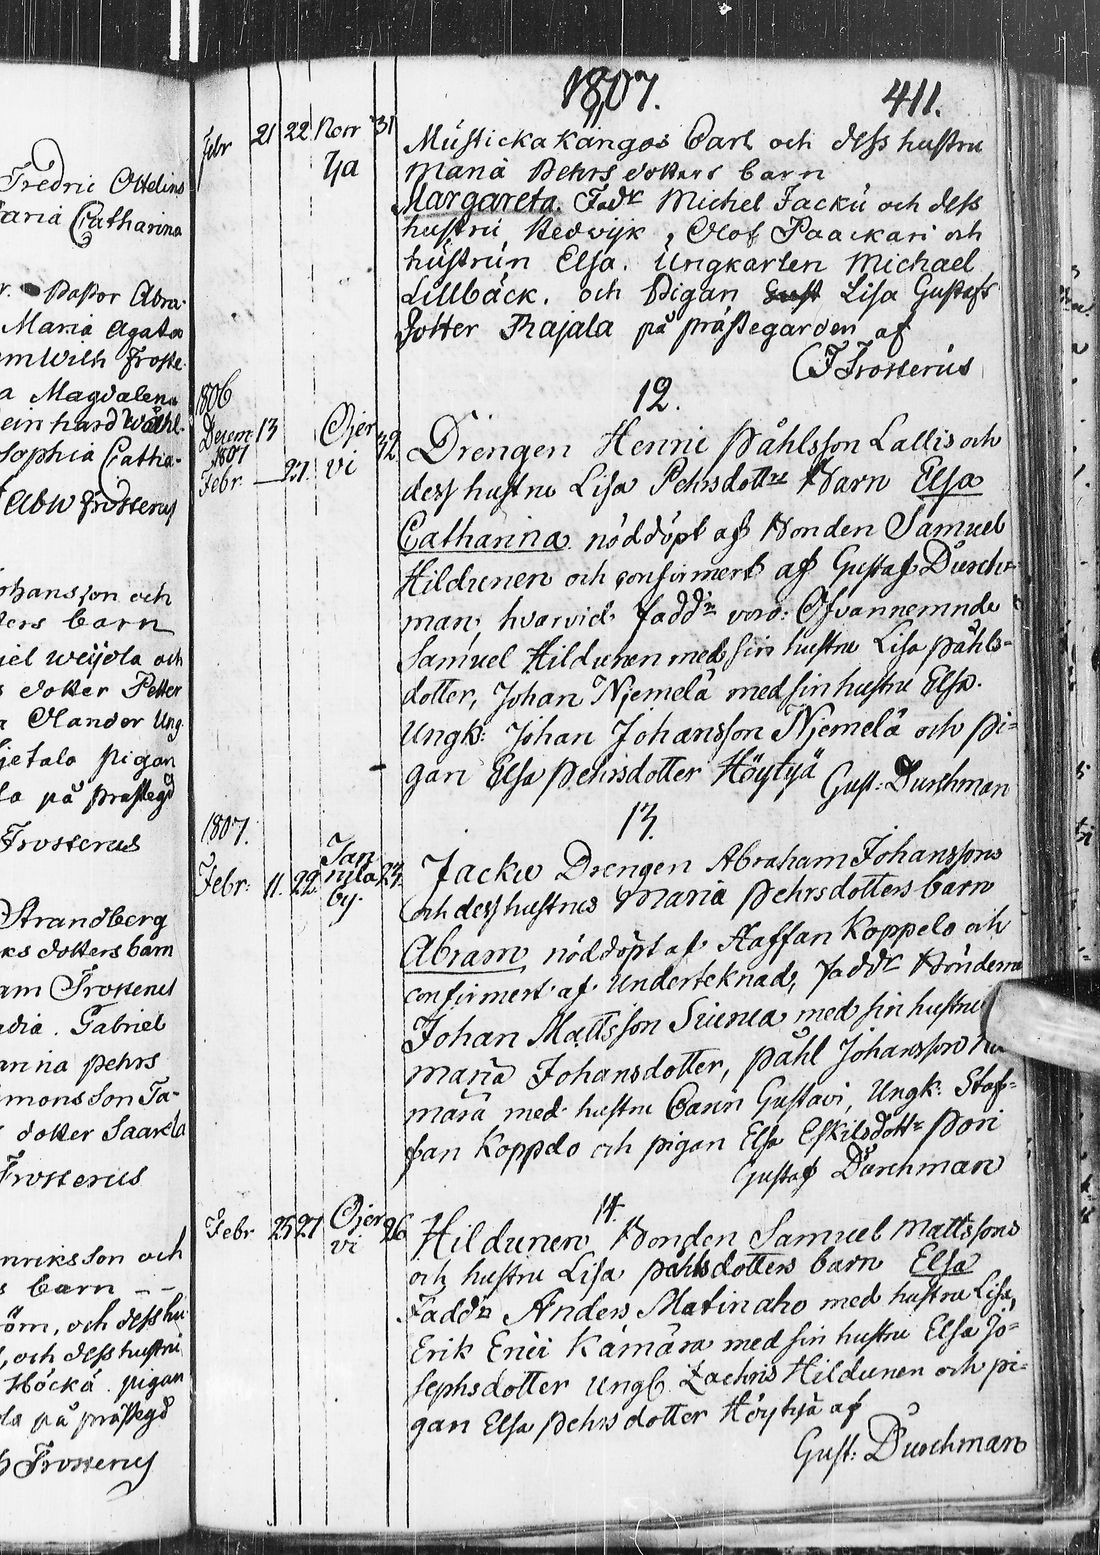 Fredric Ottelins
Maria Catharina
Pastor Abra-
Maria Agata
Wilh Froste-
a Magdalena
Reinhard Wåhl-
Sophia Catha-
Abr Frosterus
Johansson och
ters barn
Weijola och
s dotter Petter
a Olander Ung
pigan
på prästegd
Frosterus
Strandberg
ks dotters barn
am Frosterus
Gabriel
anna Pehrs
monsson Ta-
dotter Saarela
Frosterus
Henriksson och
s barn - -
öm, och dess hu
, och dess hustru
Höckä. pigan
la på prästegd
Frosterus
1807. 411.
11
Febr 21 22 Norr 31
Yja
Musticka kangas Carl och dess hustru
Maria Pehrs dotters barn
Margareta. Fadr Michel Jacku och dess
hustru Hedwijk, Olof Paackari och
hustrun Elsa. Ungkarlen Michael
Lillbäck. och Pigan Gust Lisa Gustafs
dotter Rajala på prästegården af
CF Frosterus
12.
1806
Decem 13 Ojer 32
1807 vi
Febr — 21
Drengen Henric Påhlsson Lallis och
dess hustru Lisa Pehrsdottrs Barn Elsa
Catharina nöddöpt af Bonden Samuel
Hildunen och confirmert af Gustaf Durch-
man, hvarvid faddr voro: Ofvannemnde
Samuel Hildunen med sin hustru Lisa Påhls-
dotter, Johan Njemelä med sin hustru Elsa.
Ungk: Johan Johansson Njemelä och pi-
gan Elsa Pehrsdotter Höytyä
Gust: Durchman
13.
1807.
Febr: 11. 22. Jan 24.
nila
by.
Jacku Drengen Abraham Johanssons
och dess hustrus Maria Pehrsdotters barn
Abram nöddöpt af Staffan Koppelo och
confirmert af Underteknad, Faddr Bönderna
Johan Mattsson Siurua med sin hustru
Maria Johansdotter, Påhl Johansson
mara med hustru Carin Gustavi, Ungk: Staf-
fan Koppelo och pigan Elsa Eskilsdottr Pori
Gustaf Durchman
14.
Febr 25 27 Ojer 26
vi
Hildunen Bonden Samuel Mattssons
och hustru Lisa Påhlsdotters barn Elsa
Faddr Anders Matinaho med hustru Lisa,
Erik Erici Kämära med sin hustru Elsa Jo-
sephsdotter Ungk. Zachris Hildunen och pi-
gan Elsa Pehrsdotter Höytyä af
Gust: Durchman